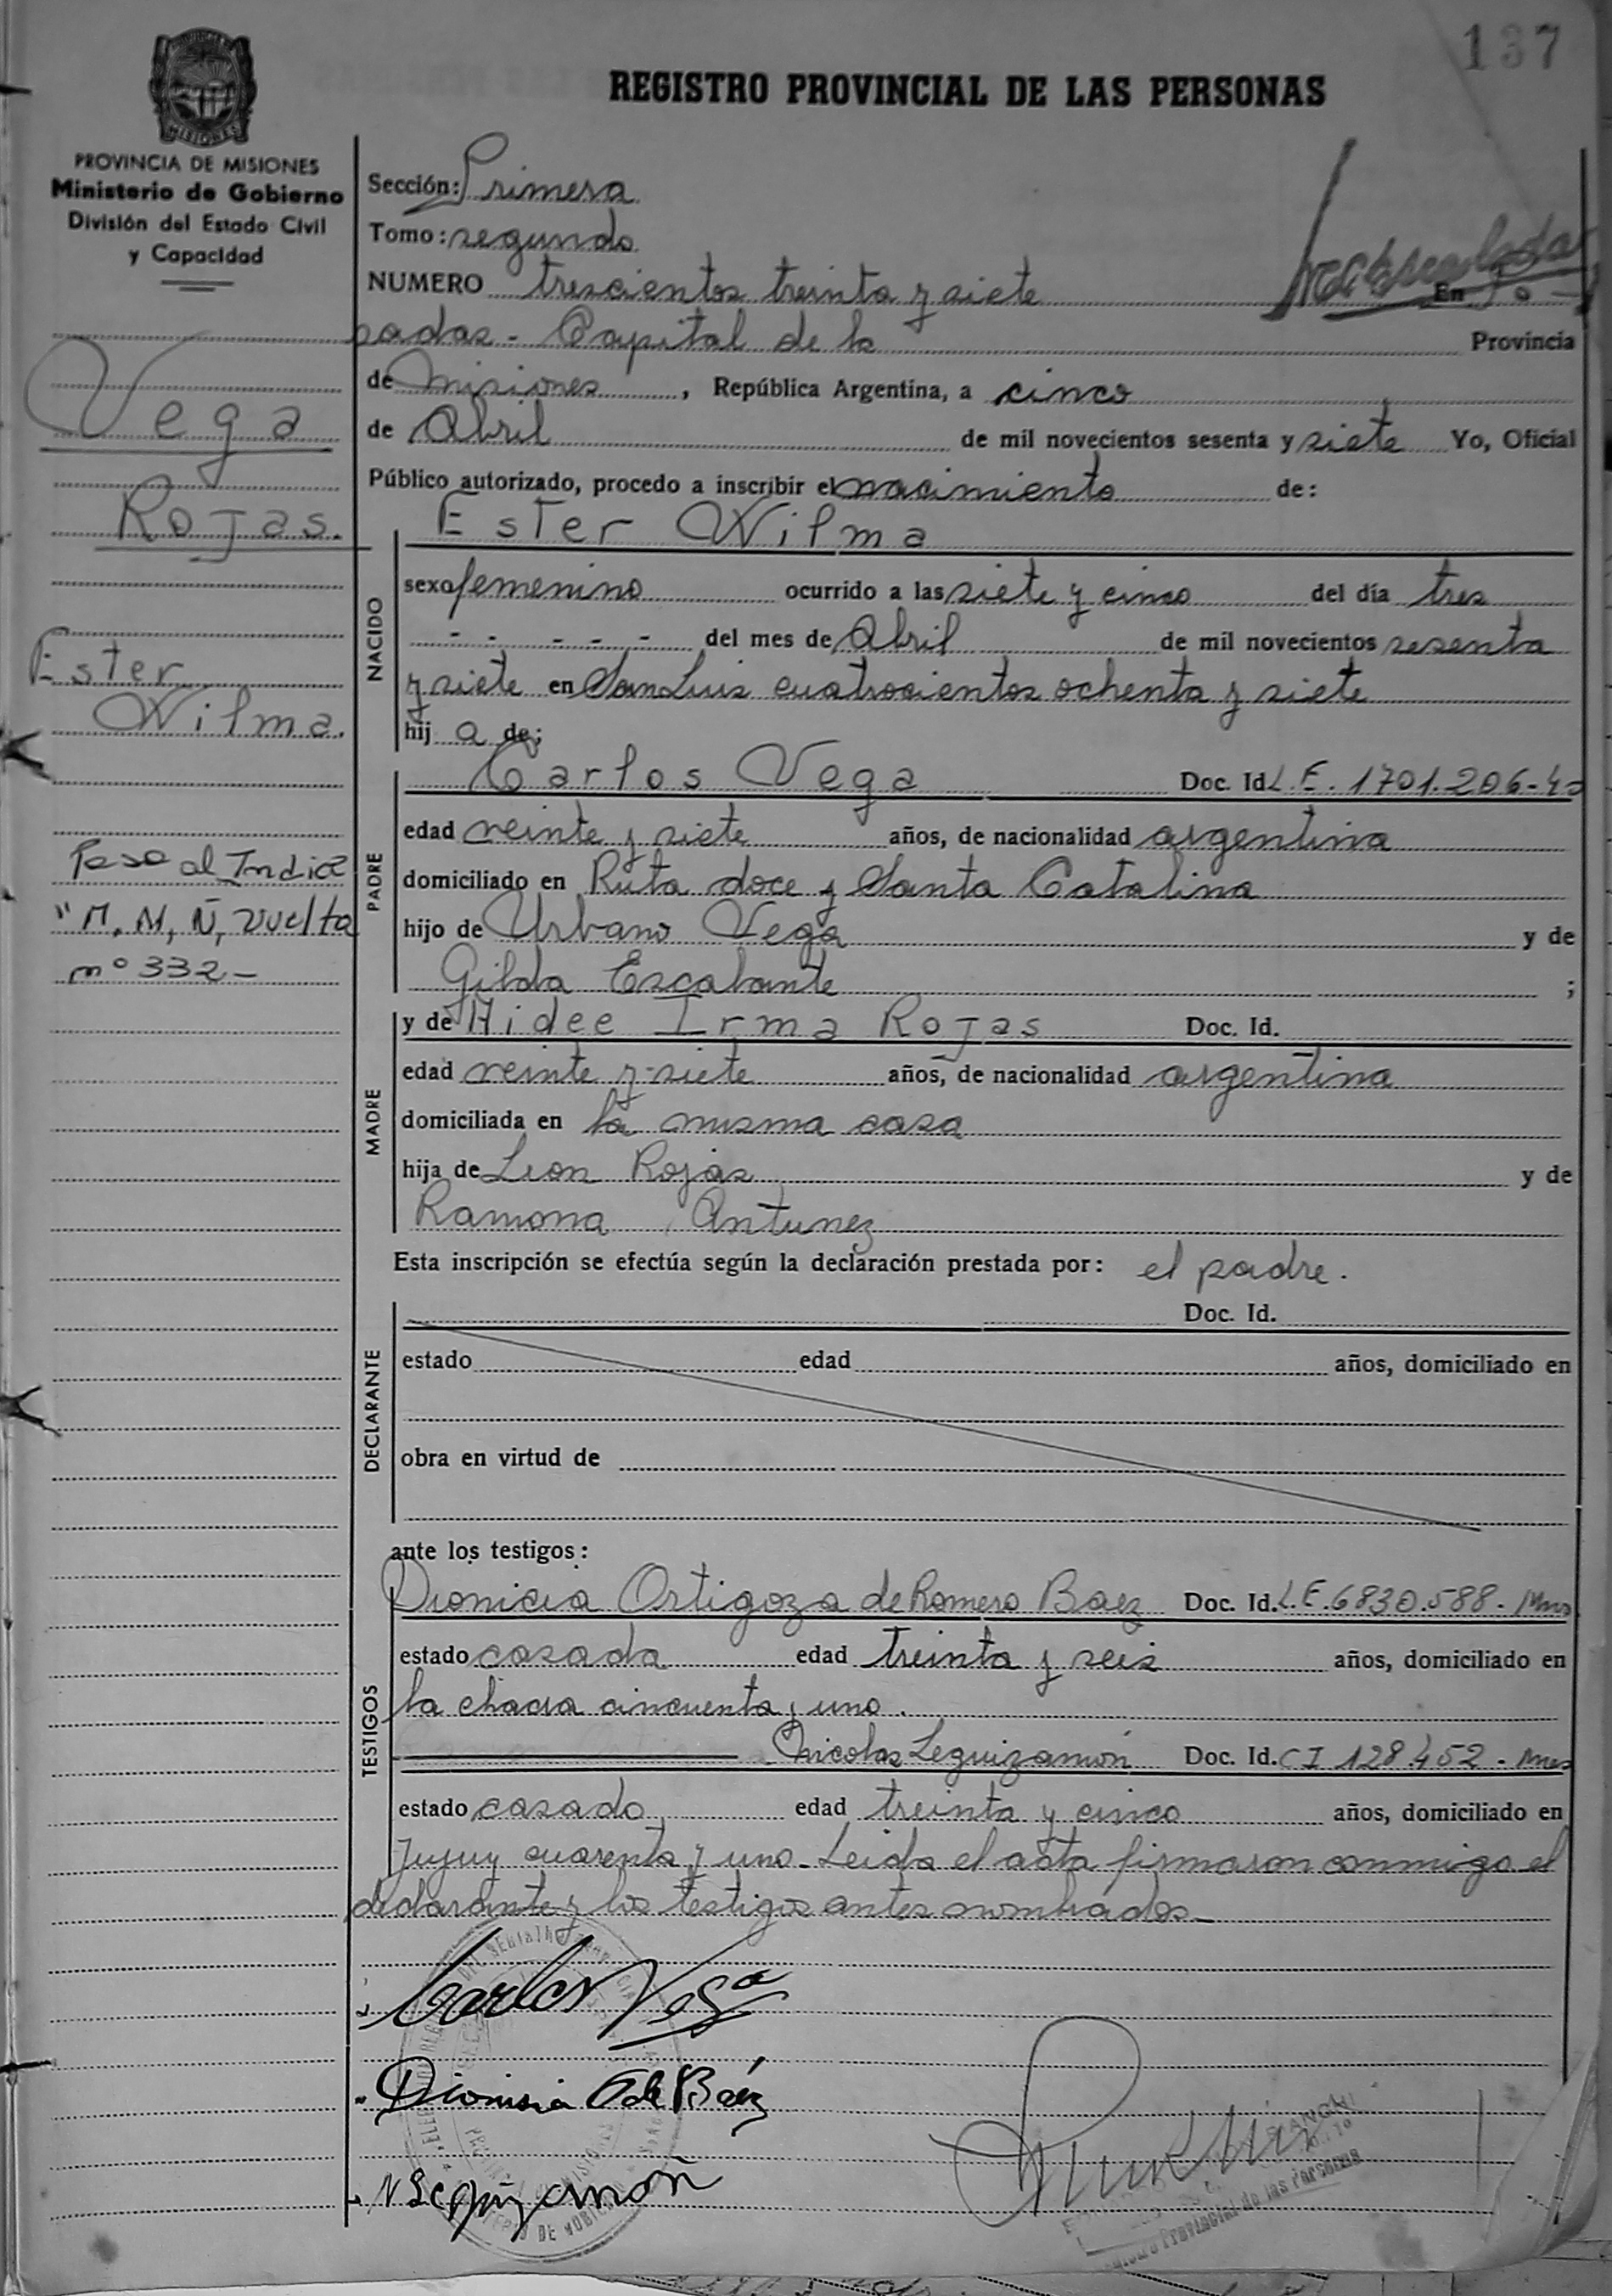 137
REGISTRO PROVINCIAL DE LAS PERSONAS
MISIONES
PROVINCIA DE MISIONES
Ministerio de Gobierno
División del Estado Civil
y Capacidad
Vega
Rojas.
Ester
Wilma.
Pasa al Indice
"M, N, Ñ, vuelta
nº 332-
Sección: Primera
Tomo: segundo
NUMERO trescientos treinta y siete En Po-
sadas - Capital de la Provincia
de Misiones, República Argentina, a cinco
de Abril de mil novecientos sesenta y siete Yo, Oficial
Público autorizado, procedo a inscribir el nacimiento de:
Ester Wilma
NACIDO
sexo femenino ocurrido a las siete y cinco del día tres
- - - - - del mes de Abril de mil novecientos sesenta
y siete en San Luis cuatrocientos ochenta y siete
hij a de;
PADRE
Carlos Vega Doc. Id L.E. 1701.206-
edad veinte y siete años, de nacionalidad argentina
domiciliado en Ruta doce y Santa Catalina
hijo de Urbano Vega y de
Gilda Escalante ;
MADRE
y de Hidee Irma Rojas Doc. Id.
edad veinte y siete años, de nacionalidad argentina
domiciliada en la misma casa
hija de Leon Rojas y de
Ramona Antunez
Esta inscripción se efectúa según la declaración prestada por: el padre.
DECLARANTE
Doc. Id.
estado edad años, domiciliado en
obra en virtud de
ante los testigos:
TESTIGOS
Dionicia Ortigoza de Romero Baez Doc. Id. L.E. 6830.588- Mnes
estado casada edad treinta y seis años, domiciliado en
la chacra cincuenta y uno.
Nicolas Leguizamón Doc. Id. CI 128.452 - Mnes
estado casado edad treinta y cinco años, domiciliado en
Jujuy cuarenta y uno. Leida el acta firmaron conmigo el
declarante y los testigos antes nombrados-
Carlos Vega
Dionisia O de Báez
N Leguizamón
Provincial de las Personas